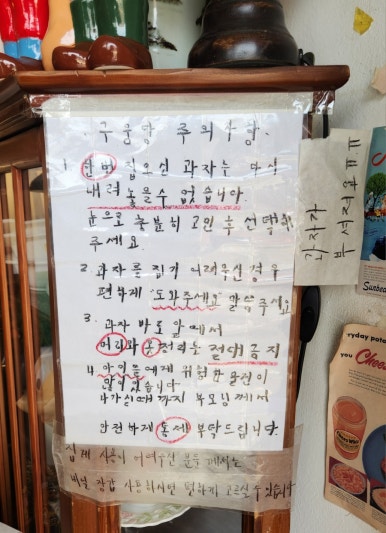 · 구움당 주의사항.
1. 한번 집으신 과자는 다시
내려 놓을수 없습니다
눈으로 충분히 보인 후 선택해
주세요.
2. 과자를 집기 어려우신 경우
편하게 "도와주세요" 말씀주세요
3. 과자 바로 앞에서
머리와 옷정리는 절대금지
4. 아이들에게 위험한 물건이
많이 있습니다
나가실때까지 부모님께서
안전하게 통제 부탁드립니다.
집게 사용이 어려우신 분들께서는
비닐 장갑 사용하시면 편하게 고르실 수 있습니다
과자가
부서져유ㅠㅠ
Sunbea
ryday pota
you
Chee
Cheez Whiz